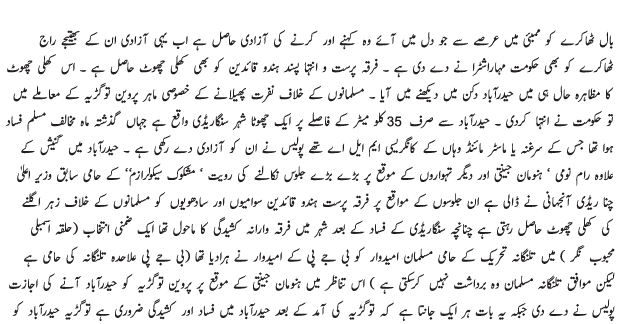 بال ٹھاکرے کو ممبئی میں عرصے سے جو دل میں آئے وہ کہنے اور کرنے کی آزادی حاصل ہے اب یہی آزادی ان کے بھتیجے راج
ٹھاکرے کو بھی حکومت مہاراشٹرا نے دے دی ہے ۔ فرقہ پرست و انتہا پسند ہندو قائدین کو بھی کھلی چھوٹ حاصل ہے ۔ اس کھلی چھوٹ
کا مظاہرہ حال ہی میں حیدرآباد دکن میں دیکھنے میں آیا ۔ مسلمانوں کے خلاف نفرت پھیلانے کے خصوصی ماہر پروین توگڑیہ کے معاملے میں
تو حکومت نے انتہا کردی ۔ حیدرآباد سے صرف 35 کلو میٹر کے فاصلے پر ایک چھوٹا شہر سنگاریڈی واقع ہے جہاں گذشتہ ماہ مخالف مسلم فساد
ہوا تھا جس کے سرغنہ یا ماسٹر مائنڈ وہاں کے کانگریسی ایم ایل اے تھے پولیس نے ان کو آزادی دے رکھی ہے ۔ حیدرآباد میں گنیش کے
علاوہ رام نومی ، ہنومان جینتی اور دیگر تہواروں کے موقع پر بڑے بڑے جلوس نکالنے کی رویت ، ”مشکوک سیکولرازم“ کے حامی سابق وزیر اعلیٰ
چنا ریڈی آنجہانی نے ڈالی ہے ان جلوسوں کے مواقع پر فرقہ پرست ہندو قائدین سوامیوں اور سادھویوں کو مسلمانوں کے خلاف زہر اگلنے
کی کھلی چھوٹ حاصل رہتی ہے چنانچہ سنگاریڈی کے فساد کے بعد شہر میں فرقہ وارانہ کشیدگی کا ماحول تھا ایک ضمنی انتخاب (حلقہ اسمبلی
محبوب نگر ) میں تلنگانہ تحریک کے حامی مسلمان امیدوار کو بی جے پی کے امیدوار نے ہرادیا تھا (بی جے پی علاحدہ تلنگانہ کی حامی ہے
لیکن موافق تلنگانہ مسلمان وہ برداشت نہیں کرسکتی ہے ) اس تناظر میں ہنومان جینتی کے موقع پر پروین توگڑیہ کو حیدرآباد آنے کی اجازت
پولیس نے دے دی جبکہ یہ بات ہر ایک جانتا ہے کہ توگڑیہ کی آمد کے بعد حیدرآباد میں فساد اور کشیدگی ضروری ہے توگڑیہ حیدرآباد کو